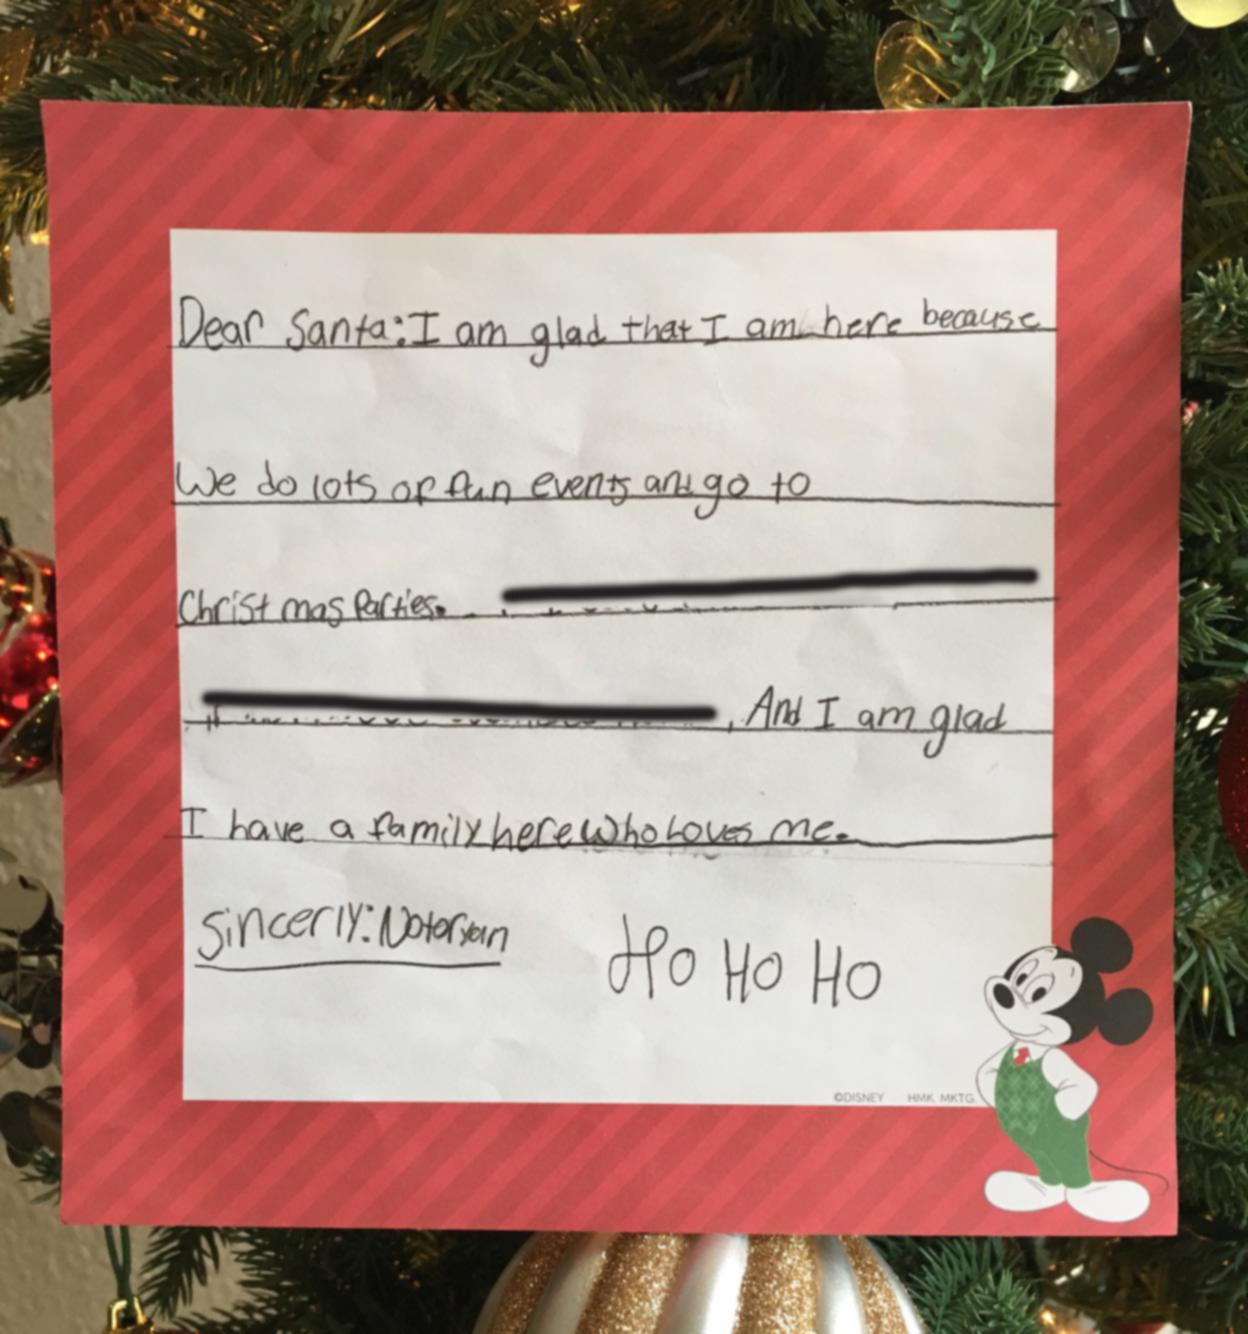 Dear Santa: I am glad that I am here because
We do lots of fun events and go to
Christmas Parties.
, And I am glad
I have a family here who Loves me.
Sincerly: Notoryan
Ho Ho Ho
©DISNEY HMK. MKTG.